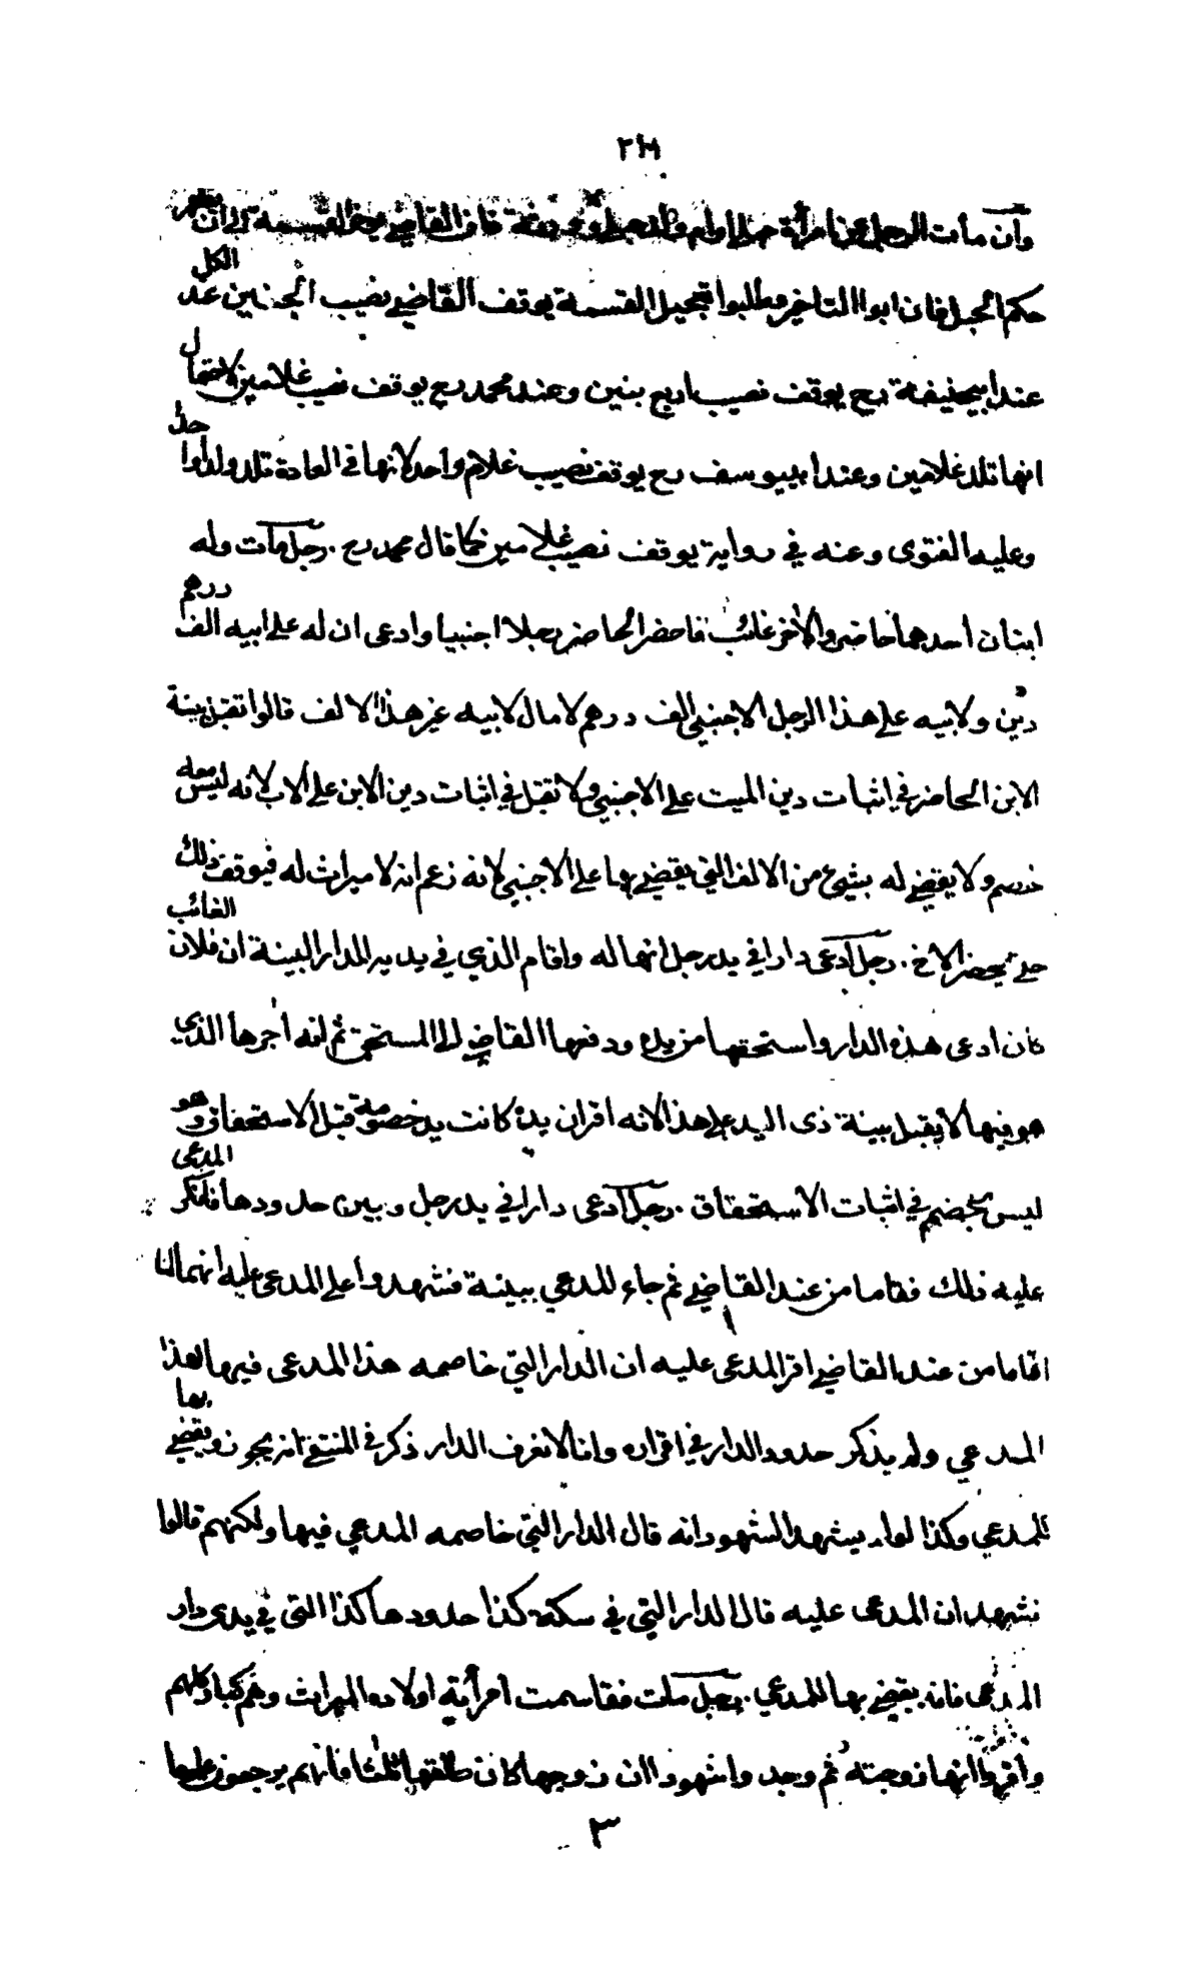 وان مات الرجل عن امرأة حملا وام وولد فان القاضي يؤخر القسمة الى ان يظهر
حكم الحبل فان ابوا التاخير وطلبوا تعجيل القسمة يوقف القاضي نصيب الجنين عند الكل
عند ابيحنيفة رح يوقف نصيب اربع بنين وعند محمد رح يوقف نصيب غلامين لاحتمال
انها تلد غلامين وعند ابييوسف رح يوقف نصيب غلام واحد لانها في العادة تلد ولدا واحدا
وعليه الفتوى وعنه في رواية يوقف نصيب غلامين كما قال محمد رح . رجل مات وله
ابنان احدهما حاضر والاخر غائب فاحضر الحاضر رجلا اجنبيا وادعى ان له على ابيه الف درهم
دين ولابيه على هذا الرجل الاجنبي الف درهم لا مال لابيه غير هذا الالف قالوا تقبل بينة
الابن الحاضر في اثبات دين الميت على الاجنبي ولا تقبل في اثبات دين الابن على الاب لانه ليس معه
خصم ولا يقضى له بشيء من الالف التي يقضى بها على الاجنبي لانه زعم انه لا ميراث له فيوقف ذلك
حتى يحضر الاخ . رجل ادعى دارا في يد رجل انها له واقام الذي في يديه الدار البينة ان فلان الغائب
كان ادعى هذه الدار واستحقها من يده ودفعها القاضي الى المستحق ثم انه اجرها الذي
هو فيها لا يقبل بينة ذى اليد على هذا لانه اقر ان يده كانت يد خصومة قبل الاستحقاق وهو
ليس بخصم في اثبات الاستحقاق . رجل ادعى دارا في يد رجل وبين حدودها فانكر المدعى
عليه ذلك فقاما من عند القاضي ثم جاء المدعي ببينة فشهدوا على المدعى عليه انهما لما
قاما من عند القاضي اقر المدعى عليه ان الدار التي خاصمه هذا المدعى فيها لهذا
المدعي ولم يذكر حدود الدار في اقراره وانا لا نعرف الدار ذكر في المنتقى انه يجوز ويقضى بها
للمدعي وكذا لو لم يشهد الشهود انه قال الدار التي خاصمه المدعي فيها ولكنهم قالوا
نشهد ان المدعى عليه قال الدار التي في سكة كذا حدودها كذا التي في يدي دار
المدعى فانه يقضى بها للمدعي . رجل مات فقاسمت امرأته اولاده الميراث وهم كبار كلهم
واقروا انها زوجته ثم وجدوا شهودا ان زوجها كان طلقها ثلاثا فانهم يرجعون عليها